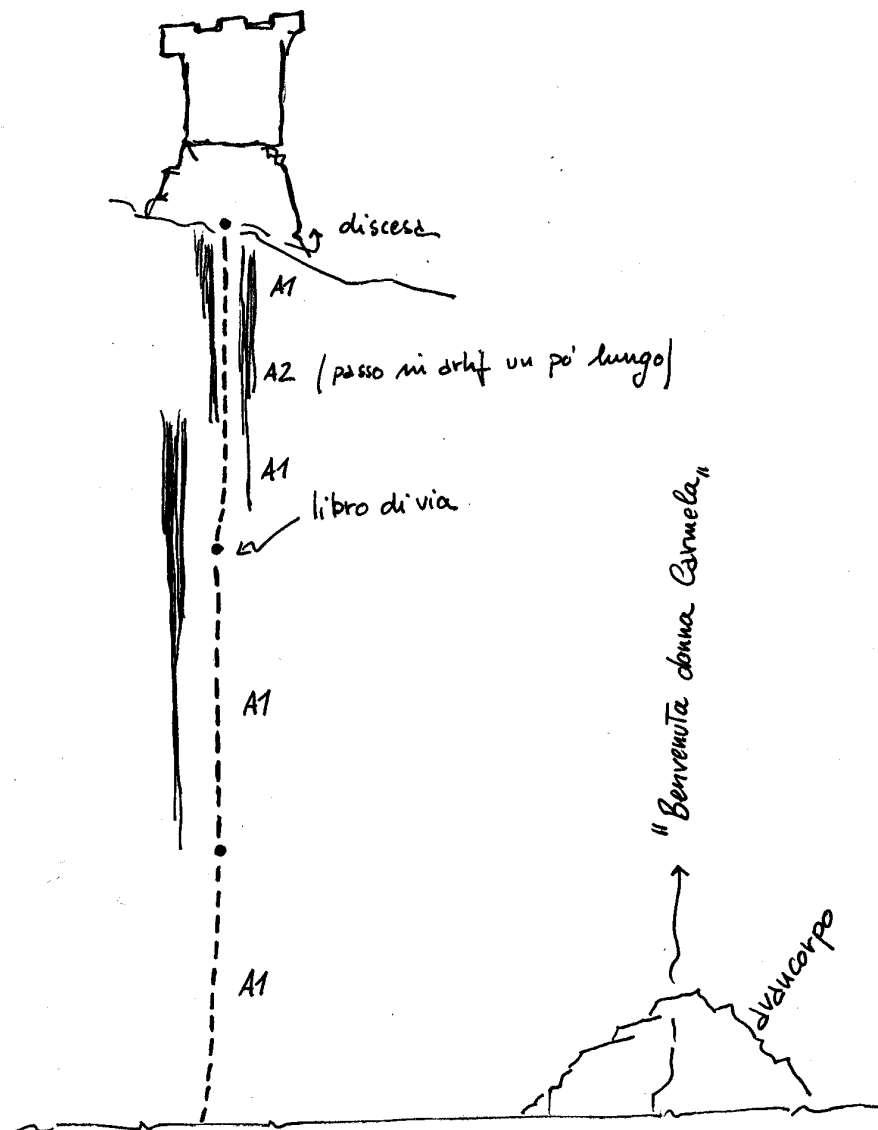 discesa
A1
A2 (passo in artif un po' lungo)
A1
libro di via
A1
"Benvenuta donna Carmela"
A1
avancorpo